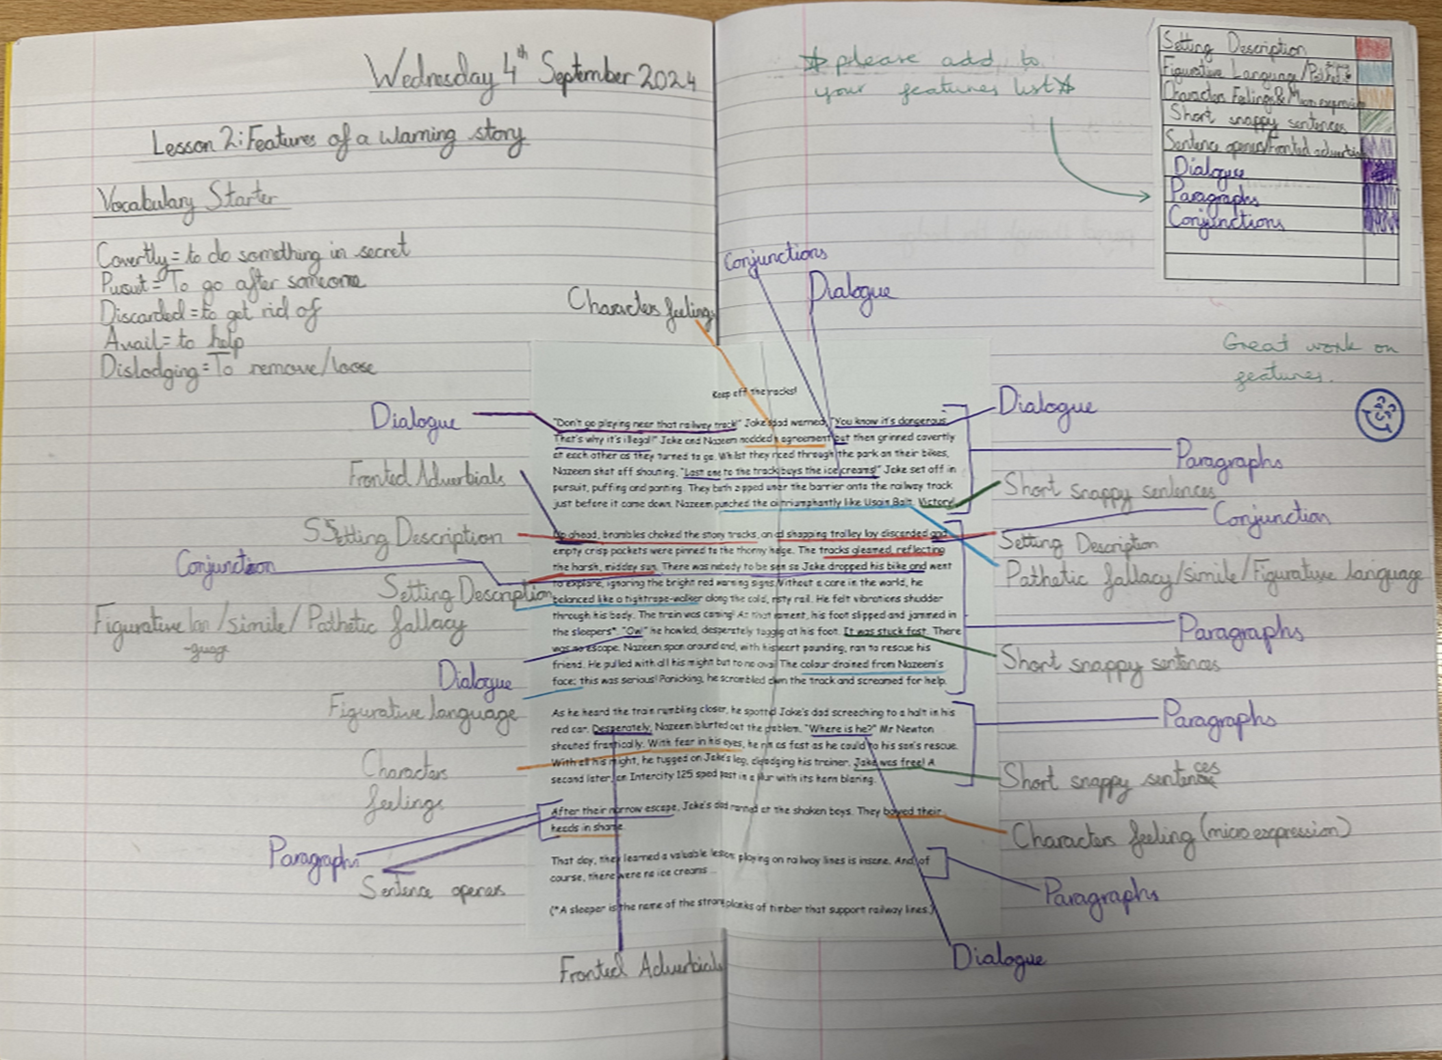 Wednesday 4th September 2024
Lesson 2: Features of a warning story
Vocabulary Starter
Covertly = to do something in secret
Pusuit = To go after someone
Discarded = to get rid of
Avail = to help
Dislodging = To remove/loose
☆ please add to
your features list ☆
Setting Description
Figurative Language/
Characters Feelings & Micro expression
Short snappy sentences
Sentence openers/Fronted adverbials
Dialogue
Paragraphs
Conjunctions
Great work on
features.
Conjunctions
Dialogue
Characters feelings
Dialogue
Fronted Adverbials
SSetting Description
Conjunction
Setting Description
Figurative lan /simile/ Pathetic fallacy
-guage
Dialogue
Figurative language
Characters
feelings
Paragraphs
Sentence openers
Fronted Adverbials
Keep off the tracks!
"Don't go playing near that railway track!" Jake's dad warned. "You know it's dangerous.
That's why it's illegal!" Jake and Nazeem nodded agreement but then grinned covertly
at each other as they turned to go. Whilst they raced through the park on their bikes,
Nazeem shot off shouting, "Last one to the track buys the ice creams!" Jake set off in
pursuit, puffing and panting. They both zipped under the barrier onto the railway track
just before it came down. Nazeem punched the air triumphantly like Usain Bolt. Victory!
Up ahead, brambles choked the stony tracks, an old shopping trolley lay discarded and
empty crisp packets were pinned to the thorny hedge. The tracks gleamed, reflecting
the harsh, midday sun. There was nobody to be seen so Jake dropped his bike and went
to explore, ignoring the bright red warning signs. Without a care in the world, he
balanced like a tightrope-walker along the cold, rusty rail. He felt vibrations shudder
through his body. The train was coming! At that moment, his foot slipped and jammed in
the sleepers*. "Ow!" he howled, desperately tugging at his foot. It was stuck fast. There
was no escape. Nazeem spun around and, with his heart pounding, ran to rescue his
friend. He pulled with all his might but to no avail. The colour drained from Nazeem's
face; this was serious! Panicking, he scrambled down the track and screamed for help.
As he heard the train rumbling closer, he spotted Jake's dad screeching to a halt in his
red car. Desperately, Nazeem blurted out the problem. "Where is he?" Mr Newton
shouted frantically. With fear in his eyes, he ran as fast as he could to his son's rescue.
With all his might, he tugged on Jake's leg, dislodging his trainer. Jake was free! A
second later, an Intercity 125 sped past in a blur with its horn blaring.
After their narrow escape, Jake's dad ranted at the shaken boys. They bowed their
heads in shame.
That day, they learned a valuable lesson: playing on railway lines is insane. And, of
course, there were no ice creams...
(*A sleeper is the name of the strong planks of timber that support railway lines.)
Dialogue
Paragraphs
Short snappy sentences
Conjunction
Setting Description
Pathetic fallacy/simile/Figurative language
Paragraphs
Short snappy sentences
Paragraphs
Short snappy sentences
Characters feeling (micro expression)
Paragraphs
Dialogue